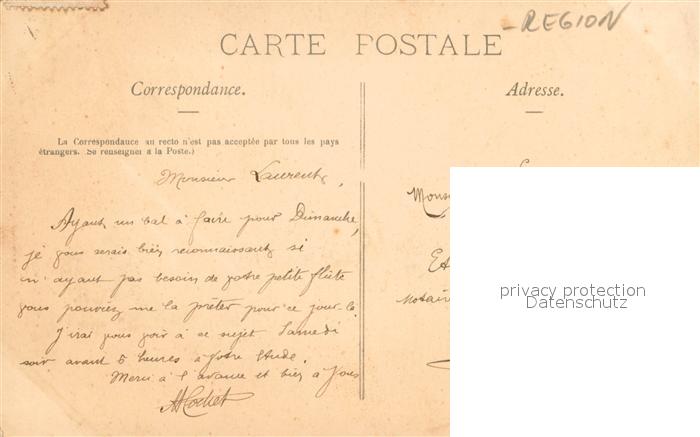 -REGION
CARTE POSTALE
Correspondance.
Adresse.
La Correspondance au recto n'est pas acceptée par tous les pays
étrangers. (Se renseigner à la Poste.)
Monsieur Laurent,
Ayant un bal à faire pour Dimanche,
je vous serais bien reconnaissant si
n'ayant pas besoin de votre petite flûte
vous pouviez me la prêter pour ce jour là.
J'irai vous voir à ce sujet Samedi
soir avant 5 heures à votre Etude.
Merci à l'avance et bien à Vous
Et
Notaire
privacy protection
Datenschutz